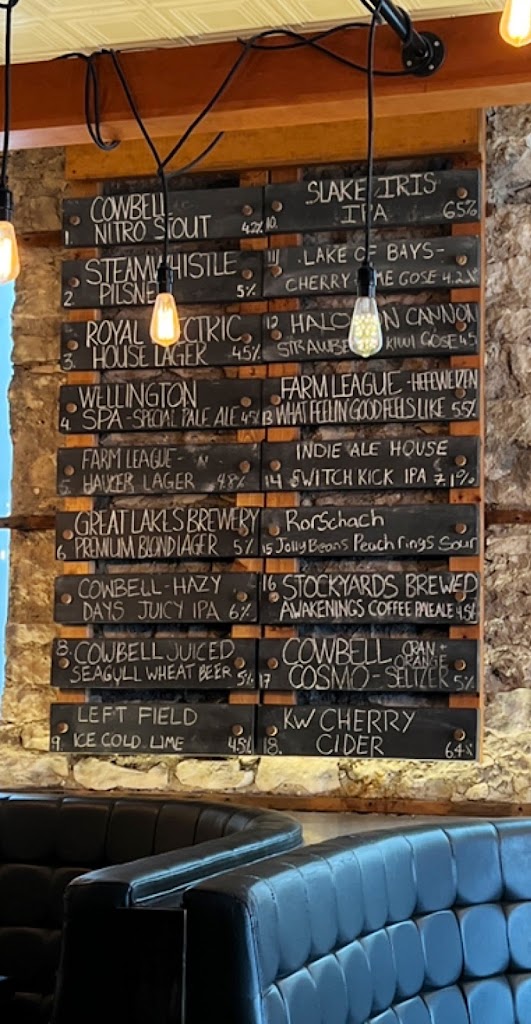 COWBELL
1. NITRO STOUT 4.2%
STEAMWHISTLE
2. PILSNE 5%
ROYAL ECTRIC
3. HOUSE LAGER 4.5%
WELLINGTON
4. SPA - SPECIAL PALE ALE 4.5%
FARM LEAGUE -
5. LAGER 4.8%
GREAT LAKES BREWERY
6. PREMIUM BLOND LAGER 5%
COWBELL - HAZY
DAYS JUICY IPA 6%
8. COWBELL JUICED
SEAGULL WHEAT BEER 5%
LEFT FIELD
9. ICE COLD LIME 4.5%
SLAKE IRIS
10. IPA 6.5%
11 LAKE OF BAYS -
CHERRY ME GOSE 4.2%
12 HALO N CANNON
STRAWBE KIWI GOSE 4.5
FARM LEAGUE - HEFEWEIZEN
13 WHAT FEELIN GOOD FEELS LIKE 5.5%
INDIE ALE HOUSE
14 SWITCH KICK IPA 7.1%
RorSchach
15 Jolly Beans Peach rings Sour
16 STOCKYARDS BREWED
AWAKENINGS COFFEE PALE ALE 4.5%
COWBELL CRAN +
ORANGE
17 COSMO - SELTZER 5%
KW CHERRY
18. CIDER 6.4%